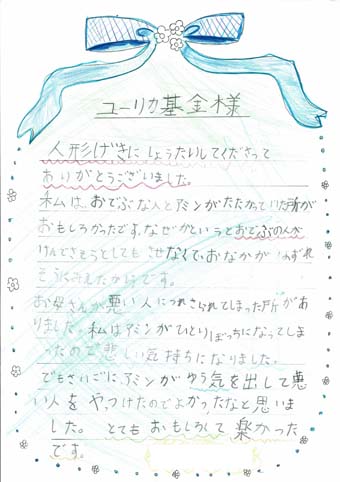 ユーリカ基金様
人形げきにしょうたいしてくださって
ありがとうございました。
私は、おでぶな人とアミンがたたかっていた所が
おもしろかったです。なぜかというとおでぶの人が
けんでさそうとしてもさせなくて、おなかが
そうにみえたからです。
お母さんが悪い人につれさられてしまった所があ
りました。私はアミンがひとりぼっちになってしま
ったので悲しい気持ちになりました。
でもさいごに、アミンがゆう気を出して悪
い人をやっつけたのでよかったなと思いま
した。とてもおもしろくて楽かった
です。